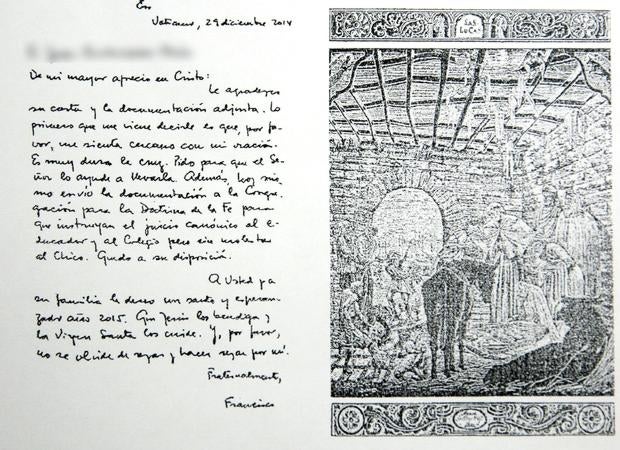 Vaticano, 29 diciembre 2014
De mi mayor aprecio en Cristo:
Le agradezco
su carta y la documentación adjunta. Lo
primero que me viene decirle es que, por fa-
vor, me sienta cercano con mi oración.
Es muy dura la cruz. Pido para que el Se-
ñor lo ayude a llevarla. Además, hoy mis-
mo envío la documentación a la Congre-
gación para la Doctrina de la Fe para
que instruyan el juicio canónico al e-
ducador y al Colegio pero sin molestar
al Chico. Quedo a su disposición.
A Usted y a
su familia le deseo un santo y esperan-
zado año 2015. Que Jesús los bendiga y
la Virgen Santa los cuide. Y, por favor,
no se olvide de rezar y hacer rezar por mí.
Fraternalmente,
Francisco
SAS
LUCAS